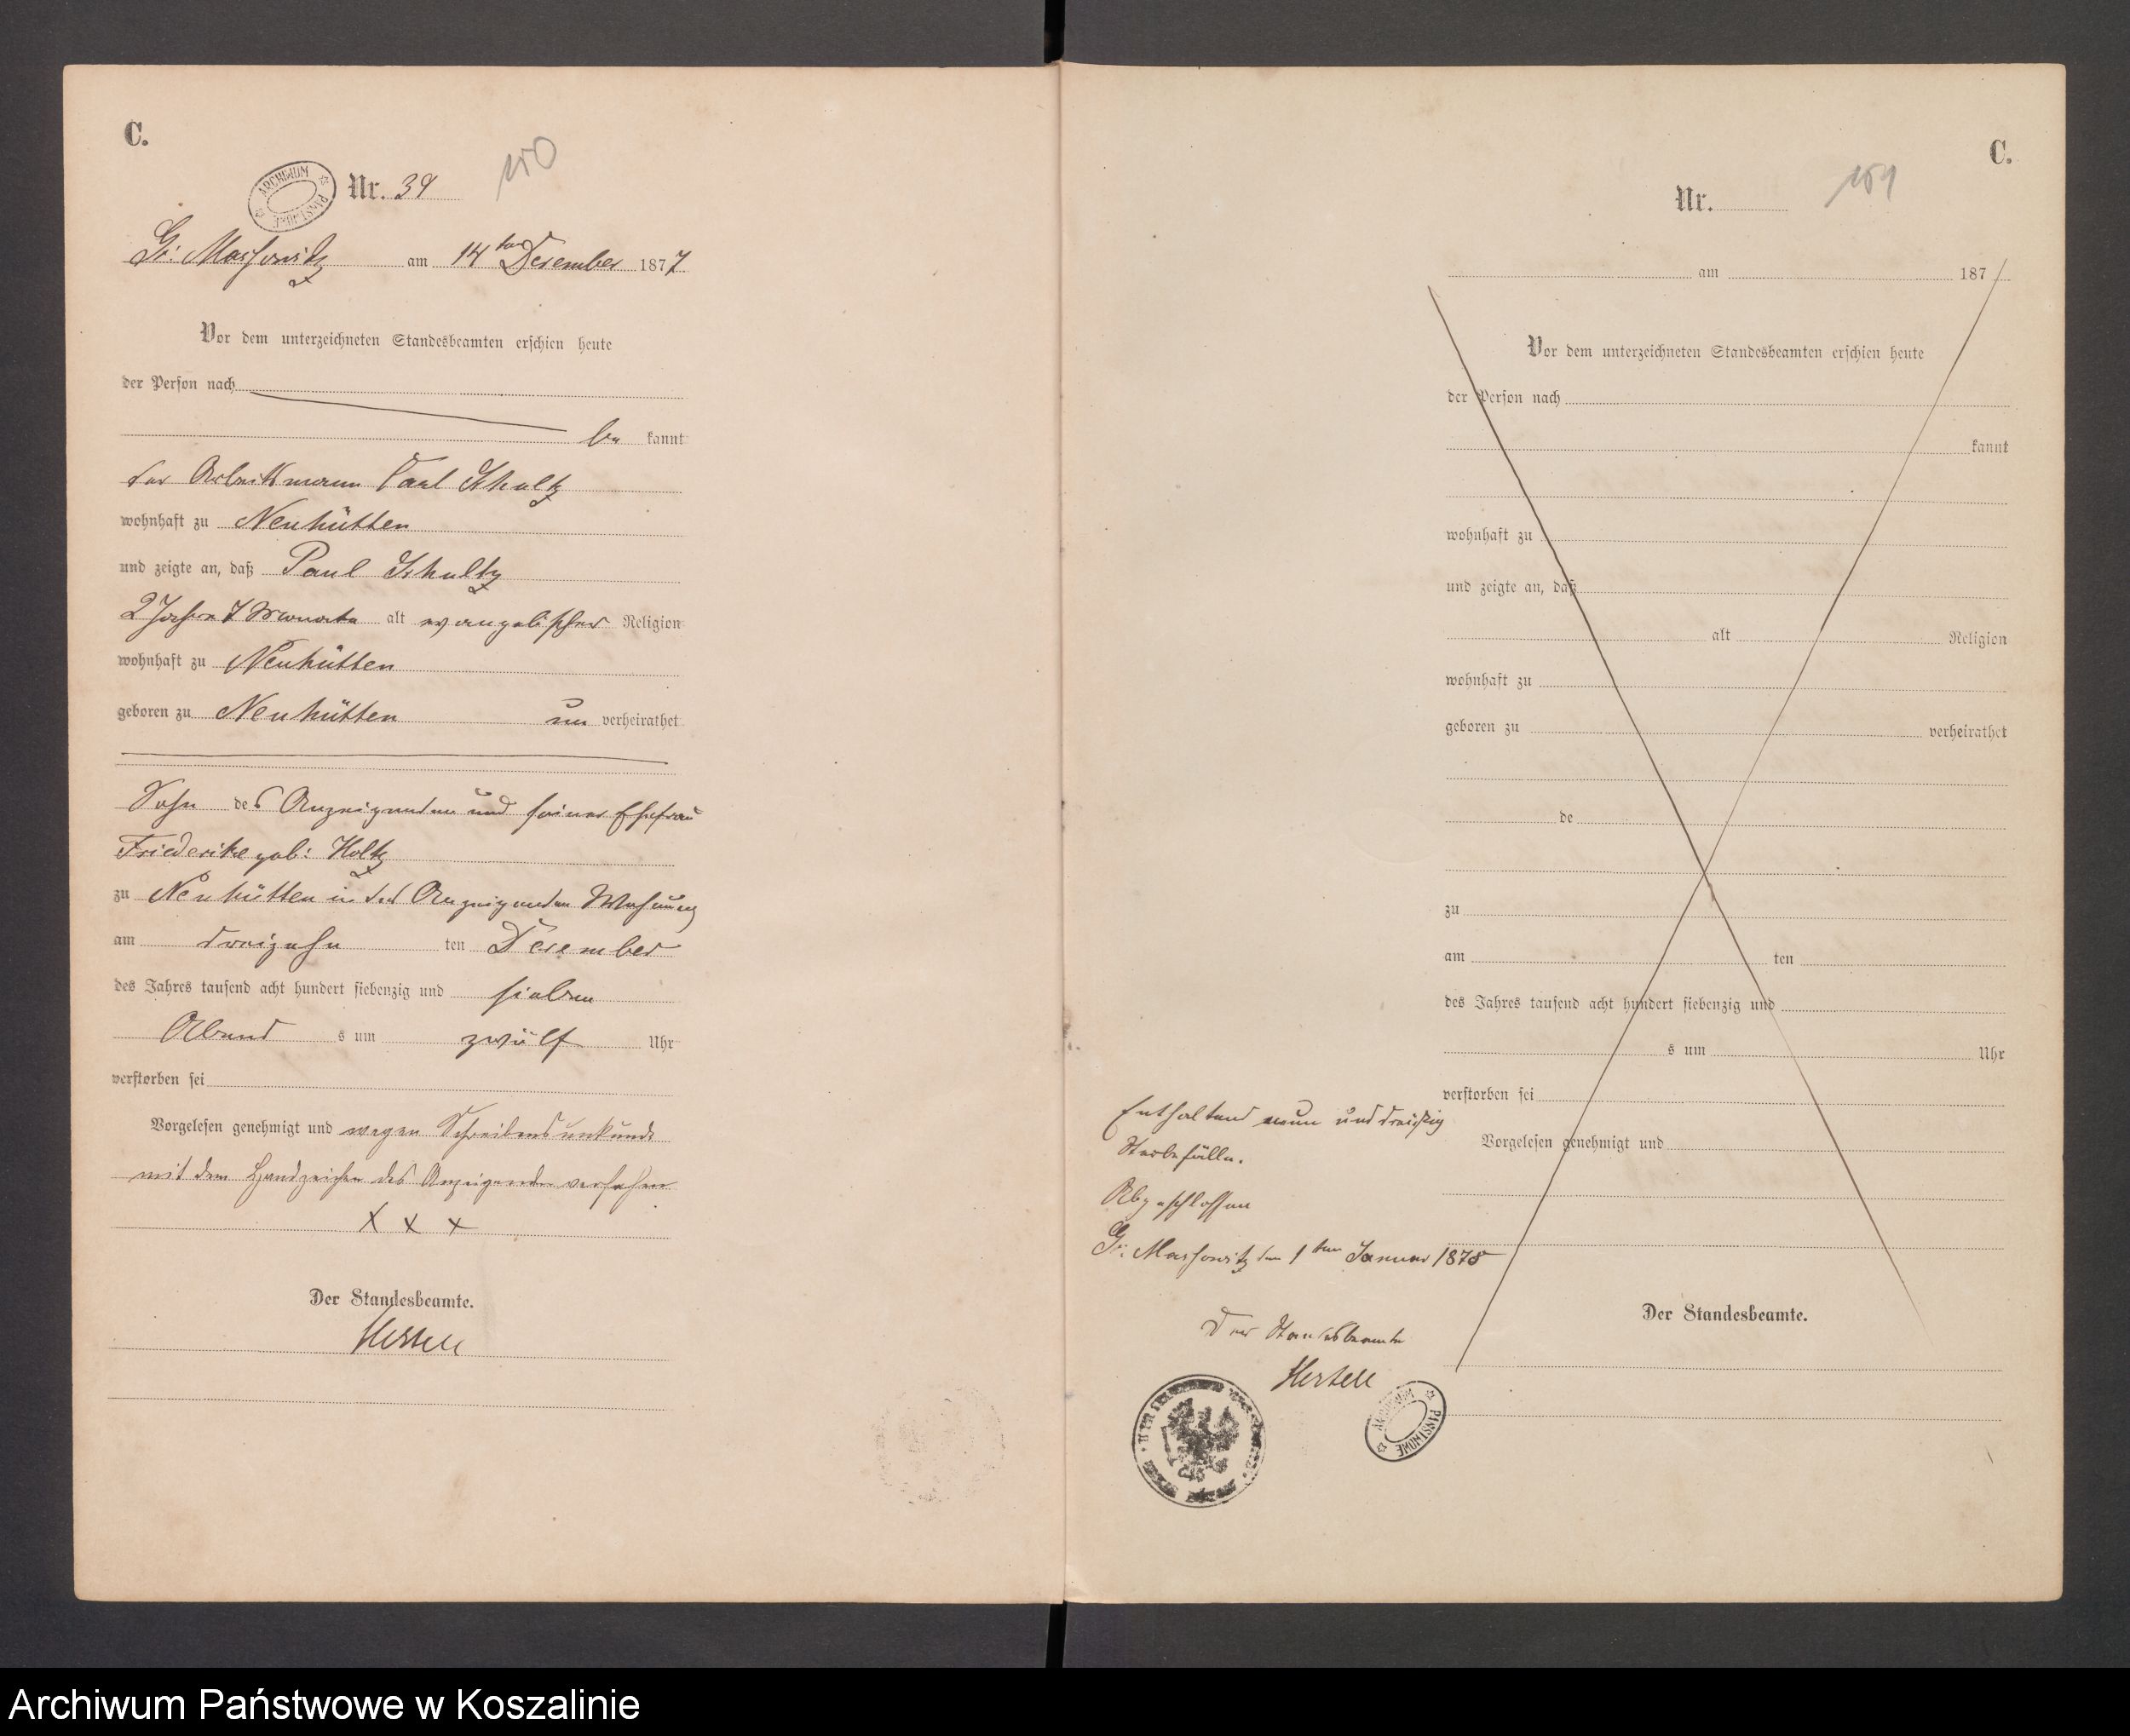 C.
Nr. 39
150
Gr. Massowitz am 14ten December 1877
Vor dem unterzeichneten Standesbeamten erschien heute
der Person nach
be kannt
der Arbeitsmann Paul Schultz
wohnhaft zu Neuhütten
und zeigte an, daß Paul Schultz
2 Jahre 7 Monate alt evangelischer Religion
wohnhaft zu Neuhütten
geboren zu Neuhütten un verheirathet
Sohn des Anzeigenden und seiner Ehefrau
Friederike geb: Holtz
zu Neuhütten in des Anzeigenden Wohnung
am dreizehn ten December
des Jahres tausend acht hundert siebenzig und sieben
Abend s um zwölf Uhr
verstorben sei
Vorgelesen genehmigt und wegen Schreibensunkunde
mit dem Handzeichen des Anzeigenden versehen
X X X
Der Standesbeamte.
Hertell
C.
Nr.
151
am 187
Vor dem unterzeichneten Standesbeamten erschien heute
der Person nach
kannt
wohnhaft zu
und zeigte an, daß
alt Religion
wohnhaft zu
geboren zu verheirathet
de
zu
am ten
des Jahres tausend acht hundert siebenzig und
s um Uhr
verstorben sei
Vorgelesen genehmigt und
Der Standesbeamte.
Enthaltend neun und dreißig
Sterbefälle.
Abgeschlossen
Gr. Massowitz den 1ten Januar 1878
Der Standesbeamte
Hertell
ARCHIWUM PAŃSTWOWE
Archiwum Państwowe w Koszalinie